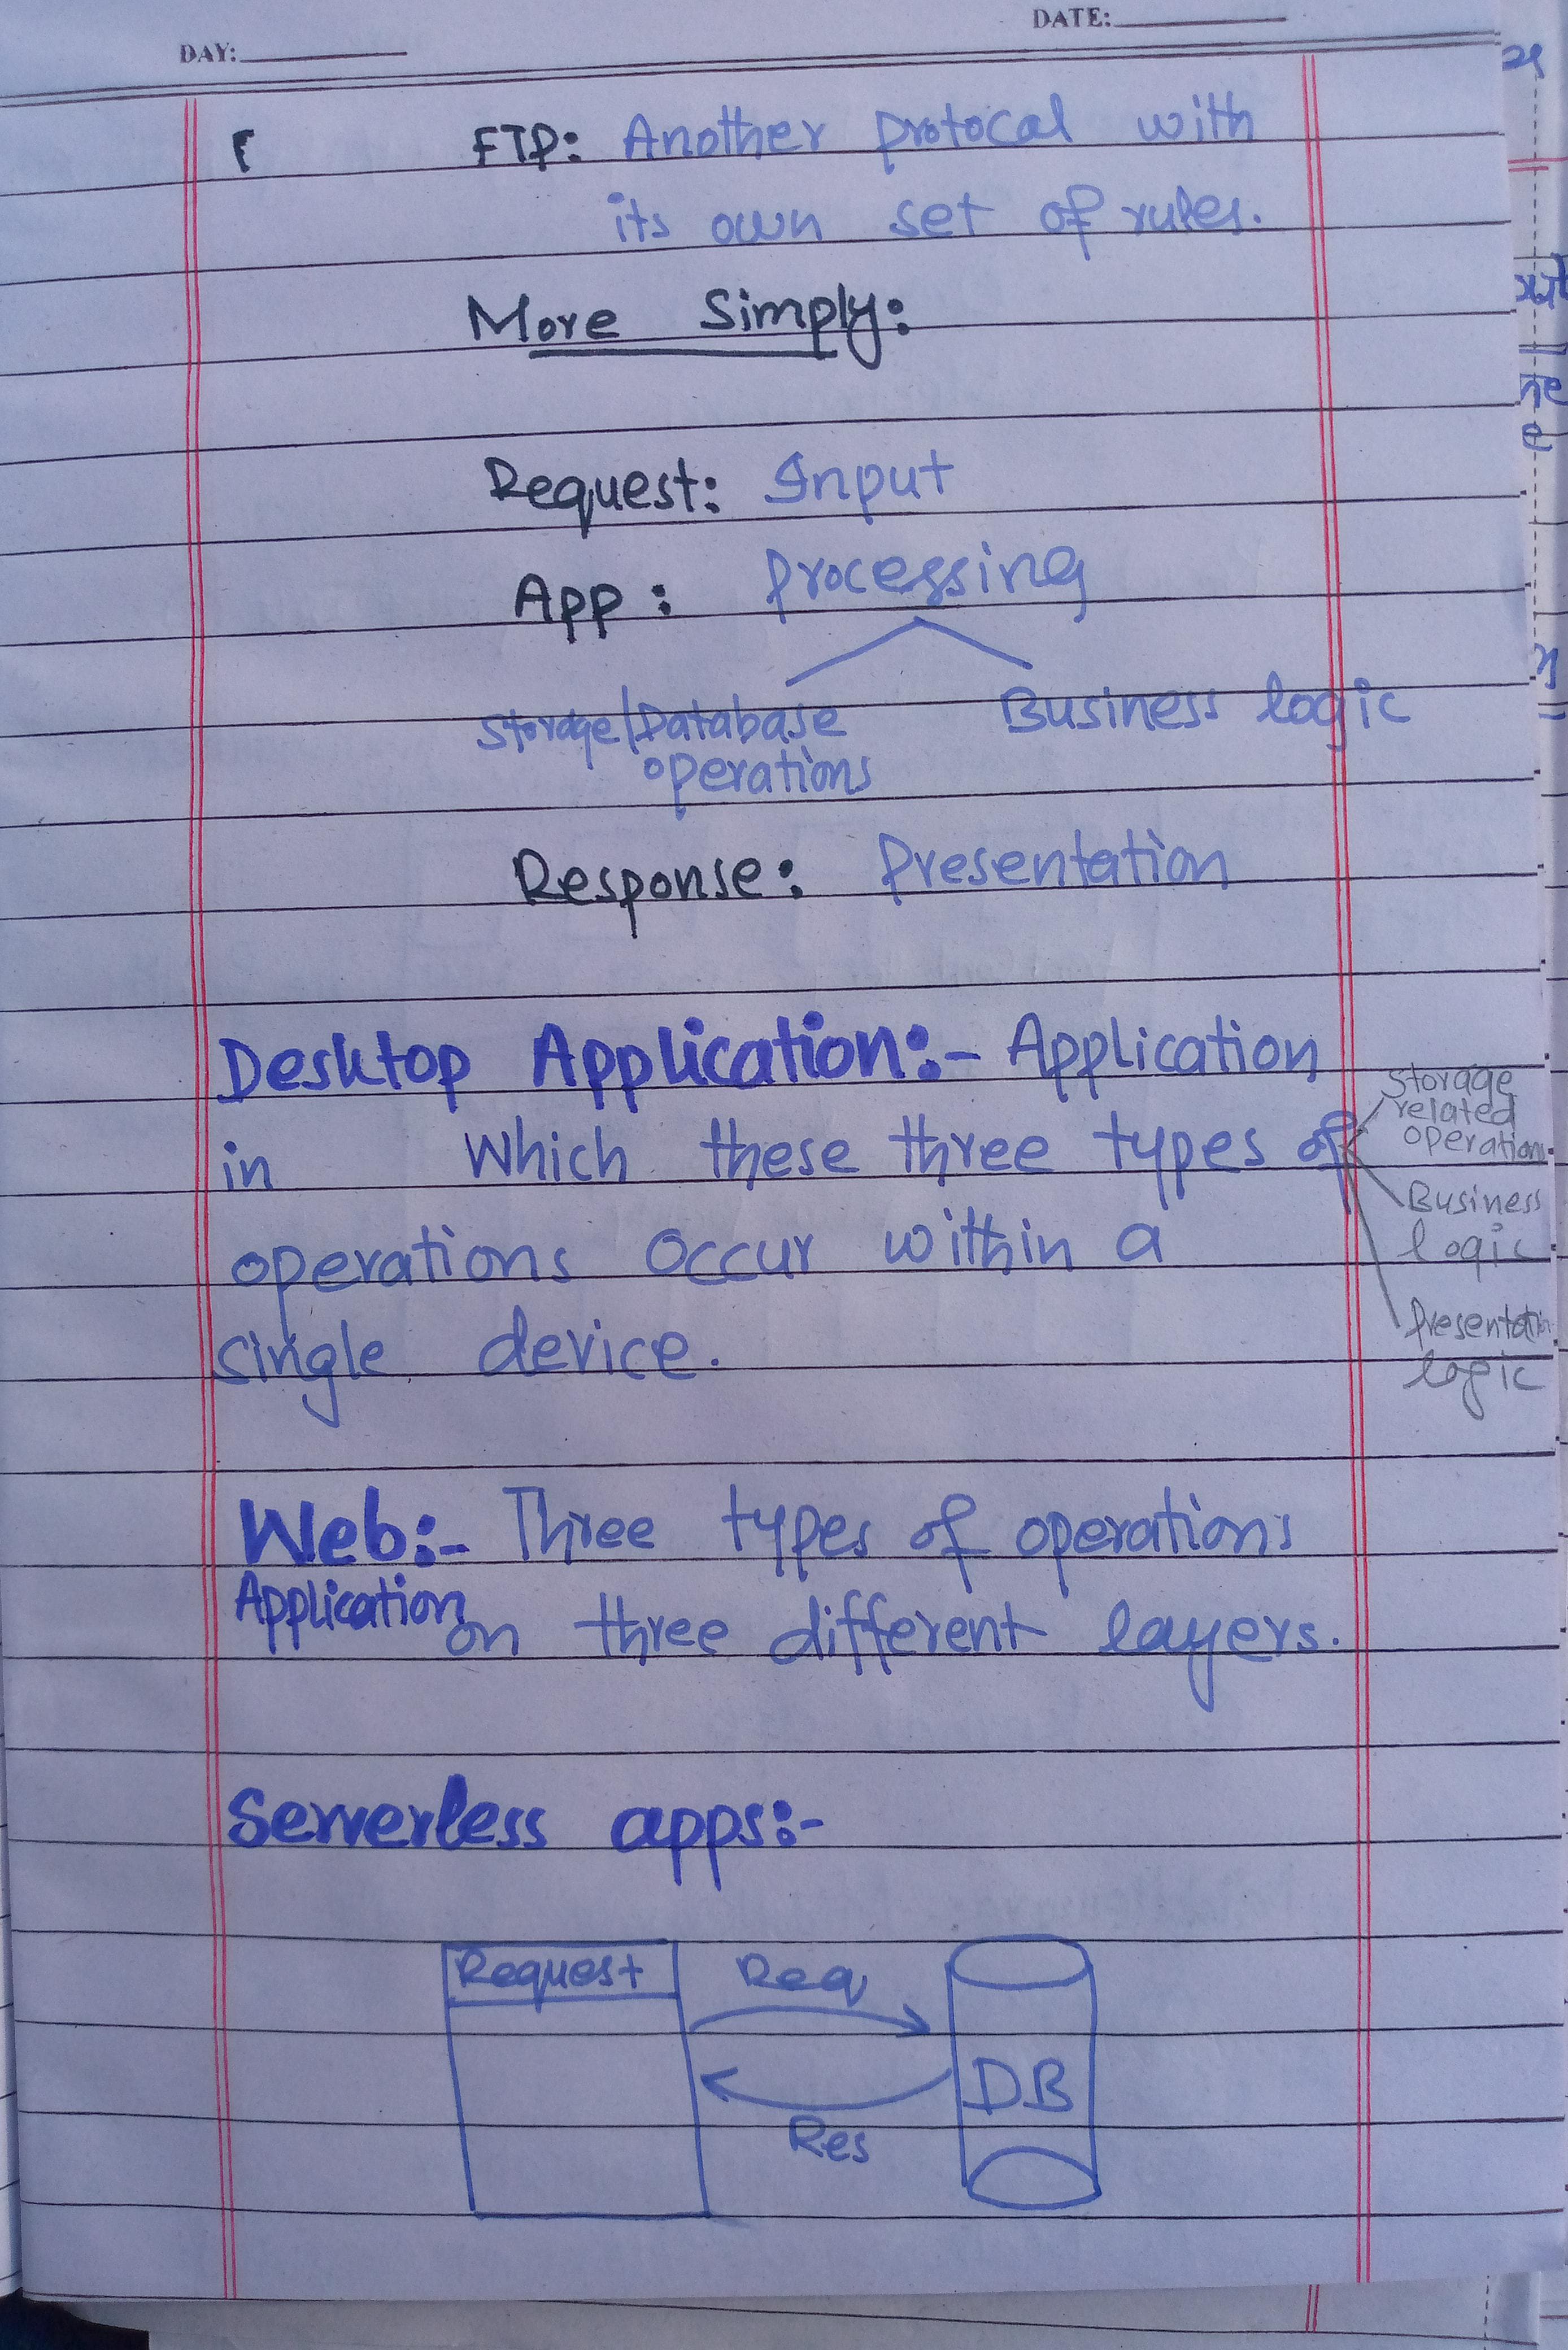 DAY:
DATE:
FTP: Another protocal with
its own set of rules.
More Simply:
Request: Input
App: Processing
Storage/Database
operations
Business logic
Response: Presentation
Desktop Application:- Application
in which these three types of
operations occur within a
single device.
Storage
related
operations
Business
logic
Presentation
logic
Web:- Three types of operations
Application on three different layers.
Serverless apps:-
Request
Req
DB
Res